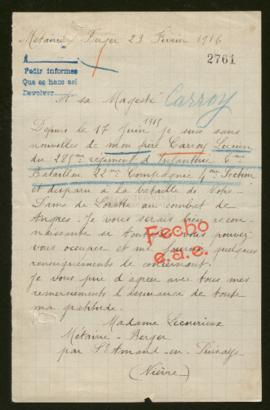 Métairie Berger 23 Février 1916
2761
A
Pedir informes
Que se haga así
Devolver
A sa Majesté Carroy
1915
Depuis le 17 Juin je suis sans
nouvelles de mon Carroy Lucien
du 28ème régiment d'Infanterie 6me
Bataillon 22me Compagnie 4me Section
et disparu à la bataille de Notre-
Dame de Lorette au combat de
Angres. Je vous serais bien recon-
naissante de vous pouvez
vous occuper et me quelques
renseignements le concernant.
Fecho
e.a.e.
Je vous prie d'agréer avec tous mes
remerciements l'assurance de toute
ma gratitude.
Madame Lecourieux
Métairie-Berger
par St Amand-en-Puisaye
(Nièvre)